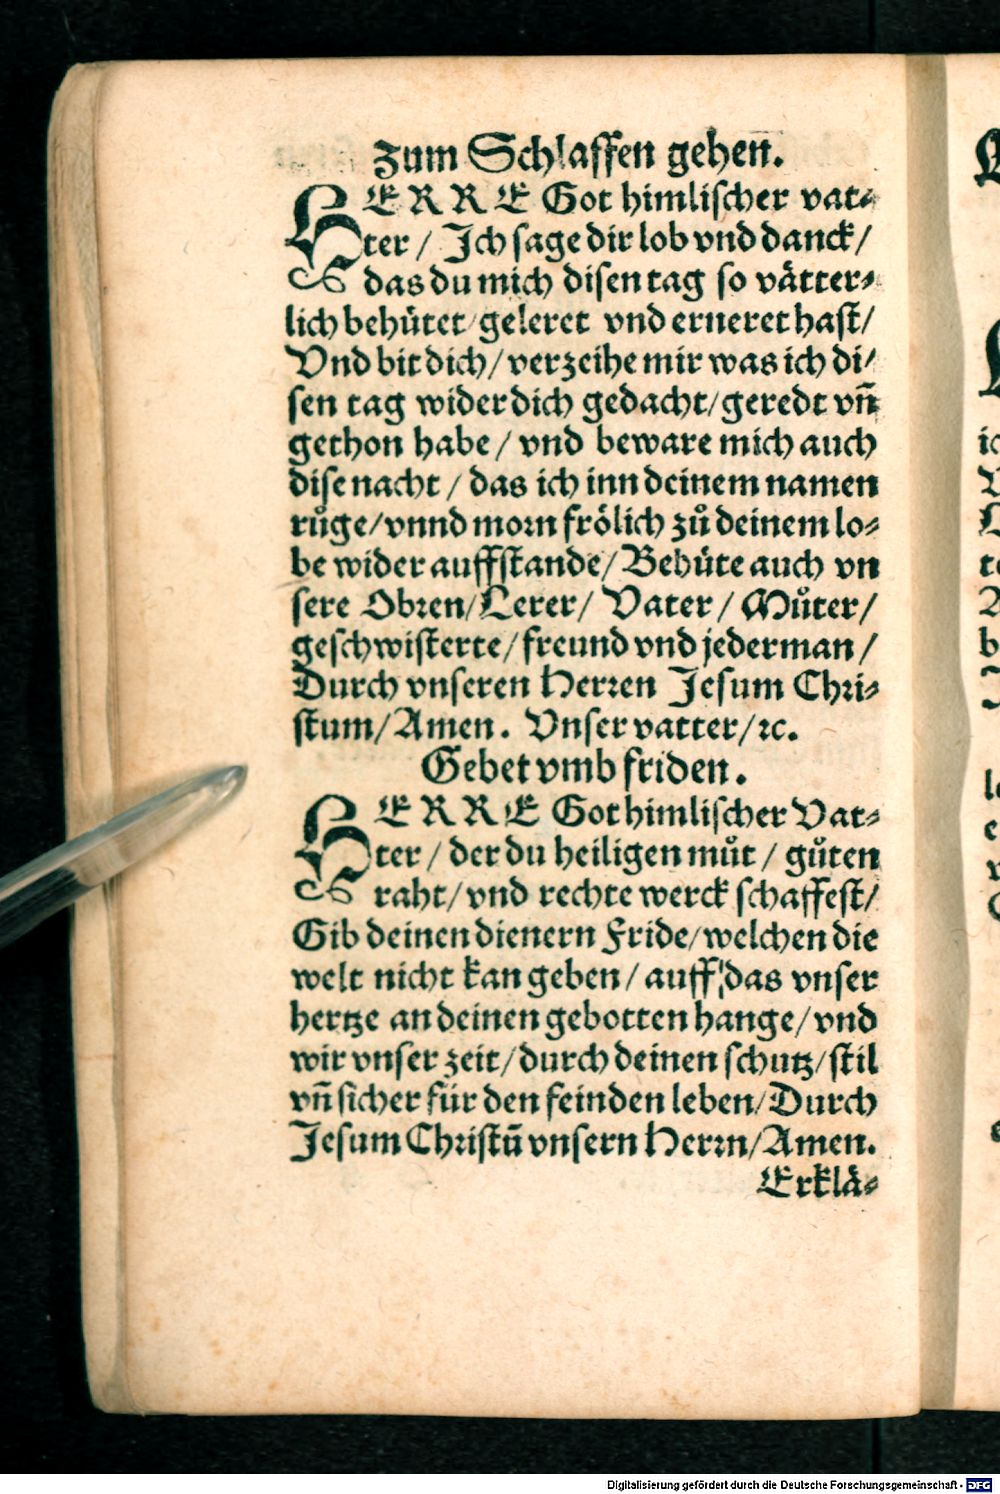 Zum Schlaffen gehen.
HERRE Got himlischer vat⸗
ter / Ich sage dir lob vnd danck/
das du mich disen tag so vätter⸗
lich behütet/geleret vnd erneret hast/
Vnd bit dich/verzeihe mir was ich di⸗
sen tag wider dich gedacht/geredt vn̄
gethon habe / vnd beware mich auch
dise nacht / das ich inn deinem namen
růge/vnnd morn frölich zů deinem lo⸗
be wider auffstande/Behüte auch vn
sere Obren/Lerer/ Vater / Můter/
geschwisterte/freund vnd jederman /
Durch vnseren Herren Jesum Chri⸗
stum/Amen. Vnser vatter/ꝛc.
Gebet vmb friden.
HERRE Got himlischer Vat⸗
ter / der du heiligen můt / gůten
raht/vnd rechte werck schaffest/
Gib deinen dienern Fride/welchen die
welt nicht kan geben / auff das vnser
hertze an deinen gebotten hange/vnd
wir vnser zeit/durch deinen schutz/stil
vn̄ sicher für den feinden leben/Durch
Jesum Christū vnsern Herrn/Amen.
Erklä⸗
Digitalisierung gefördert durch die Deutsche Forschungsgemeinschaft - DFG